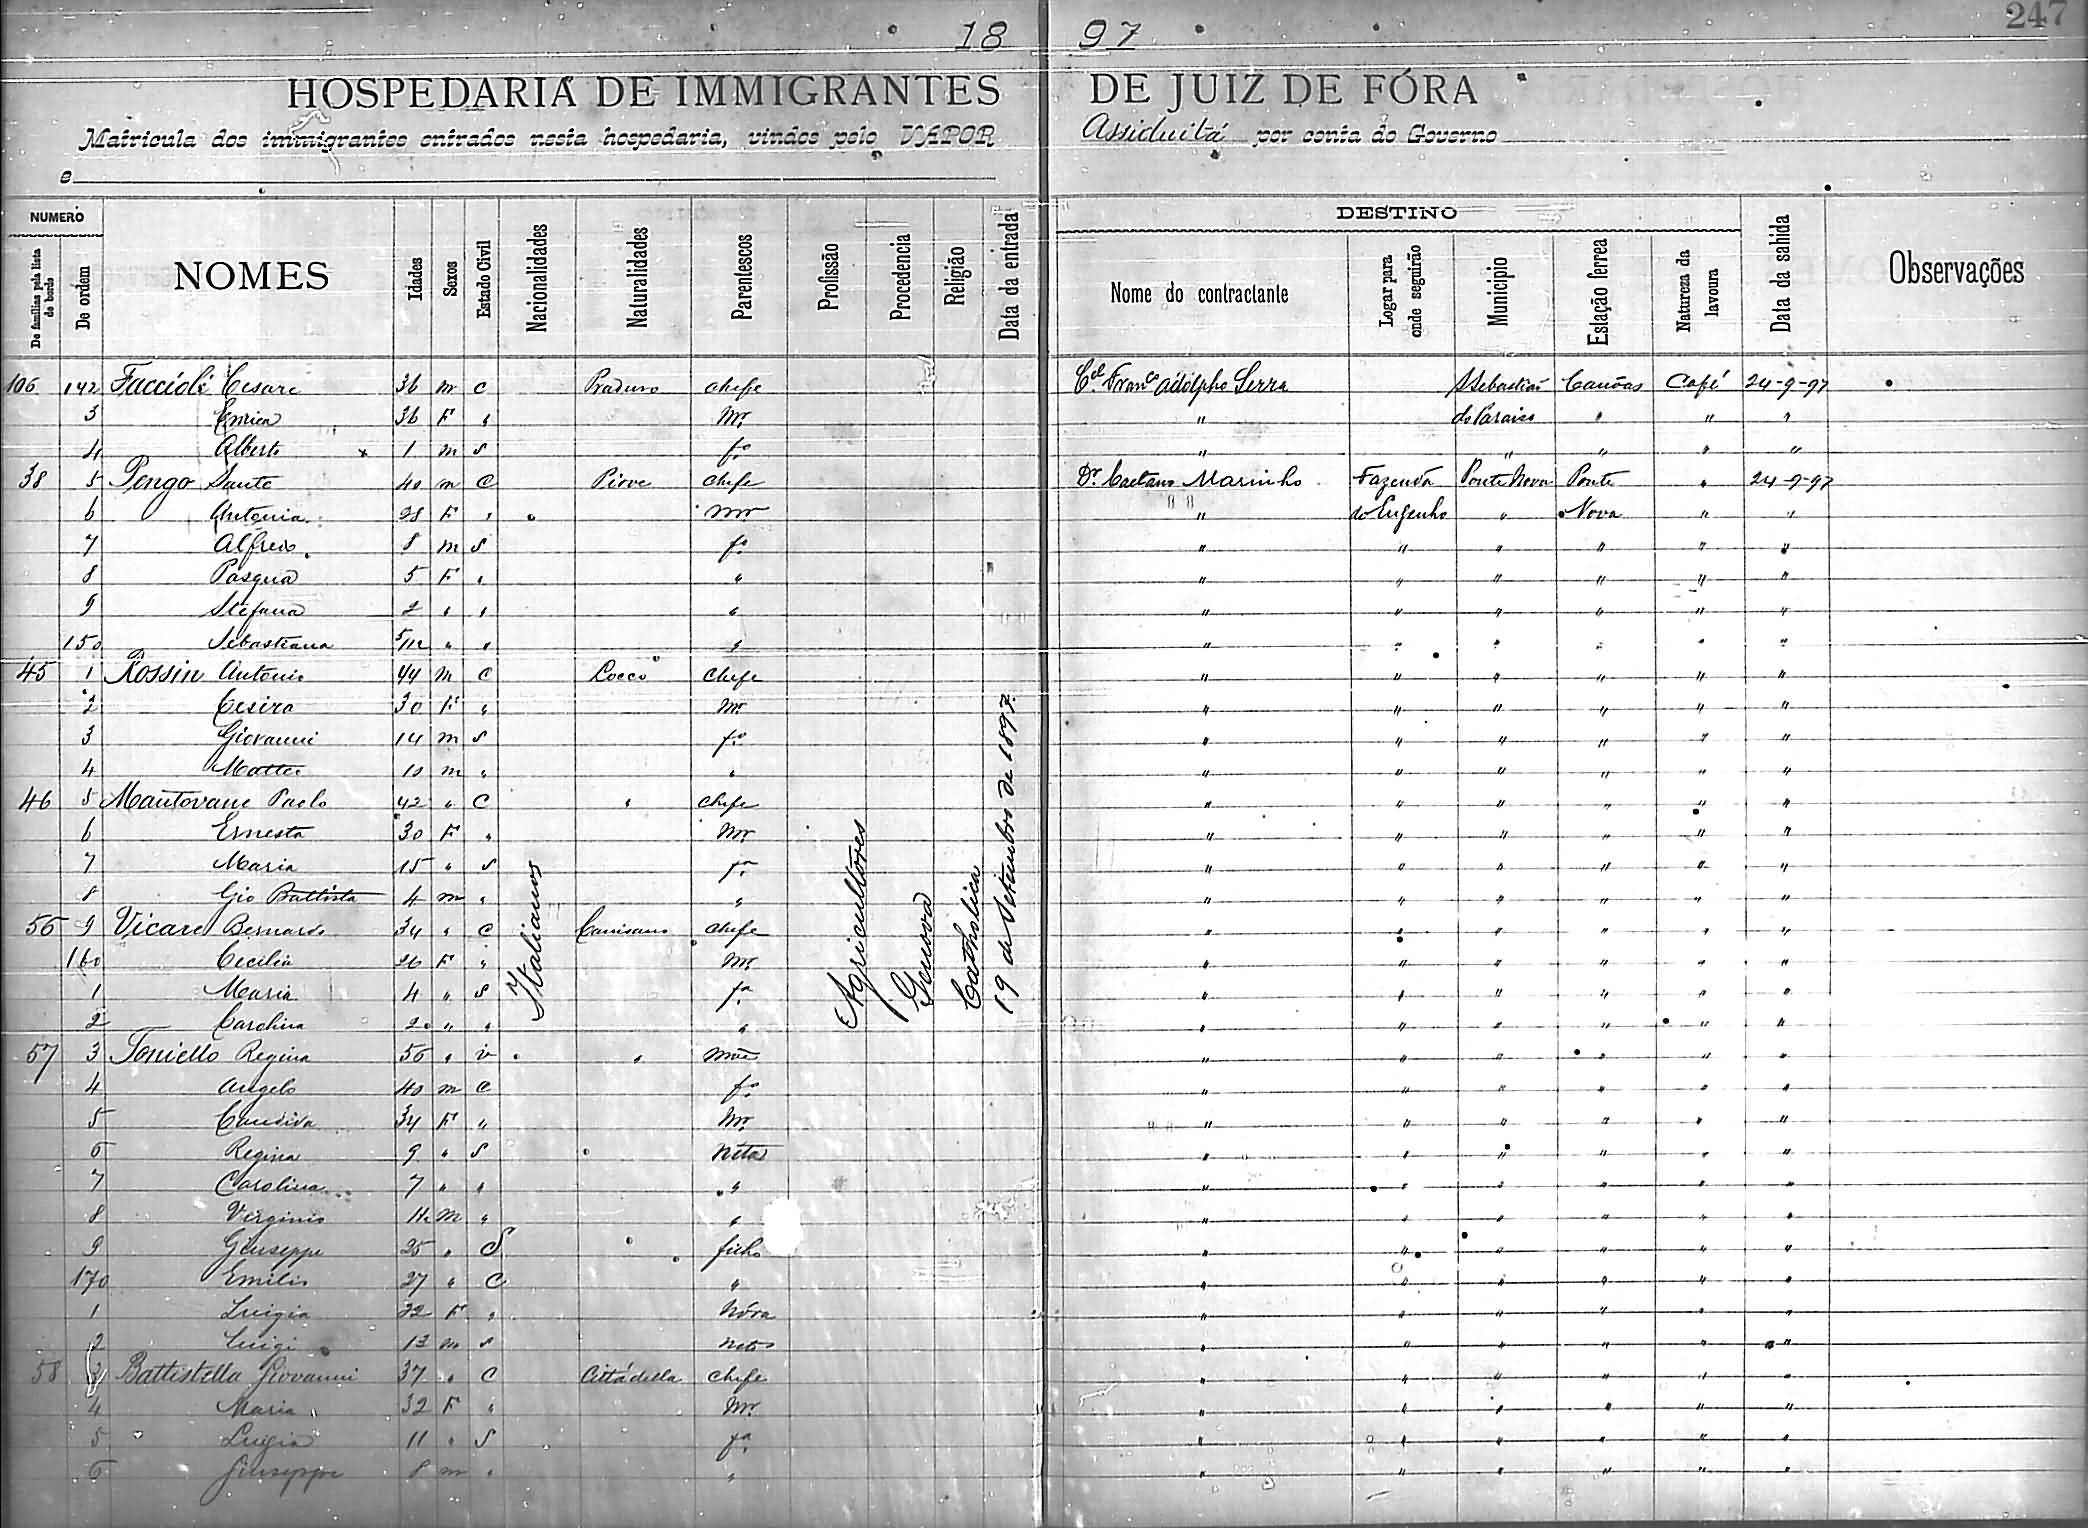 247
18 97
HOSPEDARIA DE IMMIGRANTES DE JUIZ DE FÓRA
Matricula dos immigrantes entrados nesta hospedaria, vindos pelo VAPOR Assiduitá por conta do Governo
e
NUMERO
De familias pela lista de bordo
De ordem
NOMES
Idades
Sexos
Estado Civil
Nacionalidades
Naturalidades
Parentescos
Profissão
Procedencia
Religião
Data da entrada
DESTINO
Nome do contractante
Logar para onde seguirão
Municipio
Estação ferrea
Natureza da lavoura
Data da sahida
Observações
106 142 Faccioli Cesare 36 m C Praduro chefe Cel Franco Adolpho Serra S Sebastião Canôas Café 24-9-97
3 Enrica 36 F " Mr " do Paraiso " " "
4 Alberto x 1 m S fo " " " " "
38 5 Pengo Sante 40 m C Piove chefe Dr. Caetano Marinho Fazenda Ponte Nova Ponte " 24-9-97
6 Antonia 28 F " mr " do Engenho " Nova " "
7 Alfredo 8 m S fo " " " " " "
8 Pasqua 5 F " " " " " " " "
9 Stefana 2 " " " " " " " " "
150 Sebastiana 5/12 " " " " " " " " "
45 1 Rossin Antonio 44 m C Locco chefe " " " " " "
2 Cesira 30 F " Mr " " " " " "
3 Giovanni 14 m S fo " " " " " "
4 Matteo 10 m " " " " " " " "
46 5 Mantovane Paolo 42 " C " chefe " " " " " "
6 Ernesta 30 F " Mr " " " " " "
7 Maria 15 " S fa " " " " " "
8 Gio Battista 4 m " " " " " " " "
56 9 Vicare Bernardo 34 " C Camisano chefe " " " " " "
160 Cecilia 26 F " Mr " " " " " "
1 Maria 4 " S fa " " " " " "
2 Carolina 2 " " " " " " " " "
57 3 Toniello Regina 56 " v " mãe " " " " " "
4 Angelo 40 m C fo " " " " " "
5 Candida 34 F " Mr " " " " " "
6 Regina 9 " S neta " " " " " "
7 Carolina 7 " " " " " " " " "
8 Virginio m " " " " " " " "
9 Giuseppe 25 " S filho " " " " " "
170 Emilio 27 " C " " " " " " "
1 Luigia 22 F " Nóra " " " " " "
2 Luigi 13 m S neto " " " " " "
58 3 Battistella Giovanni 37 " C Cittádella chefe " " " " " "
4 Maria 32 F " Mr " " " " " "
5 Luigia 11 " S fa " " " " " "
6 Giuseppe 8 m " " " " " " " "
Italianos
Agricultores
Genova
Catholica
19 de Setembro de 1897